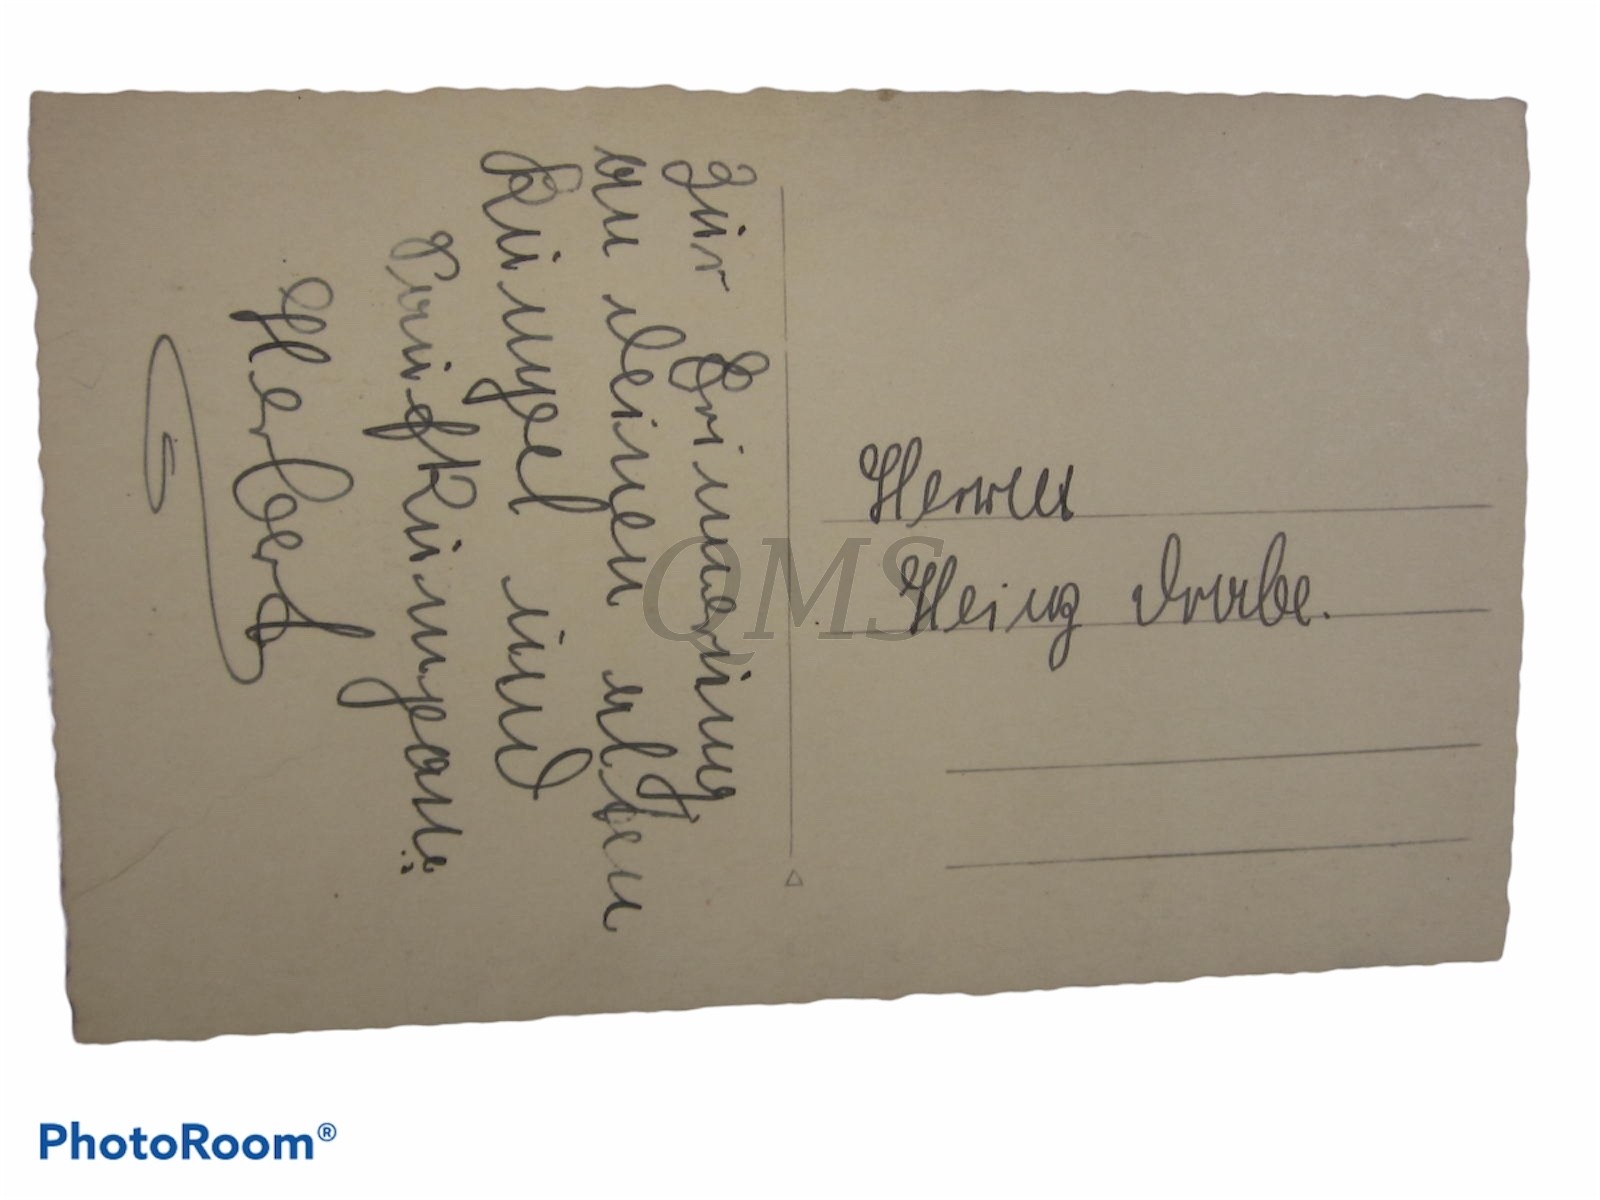 Zur Erinnerung
an deinen alten
Kumpel und
Saufkumpan
Herbert
Herrn
Heinz Drabe.
QMS
PhotoRoom®